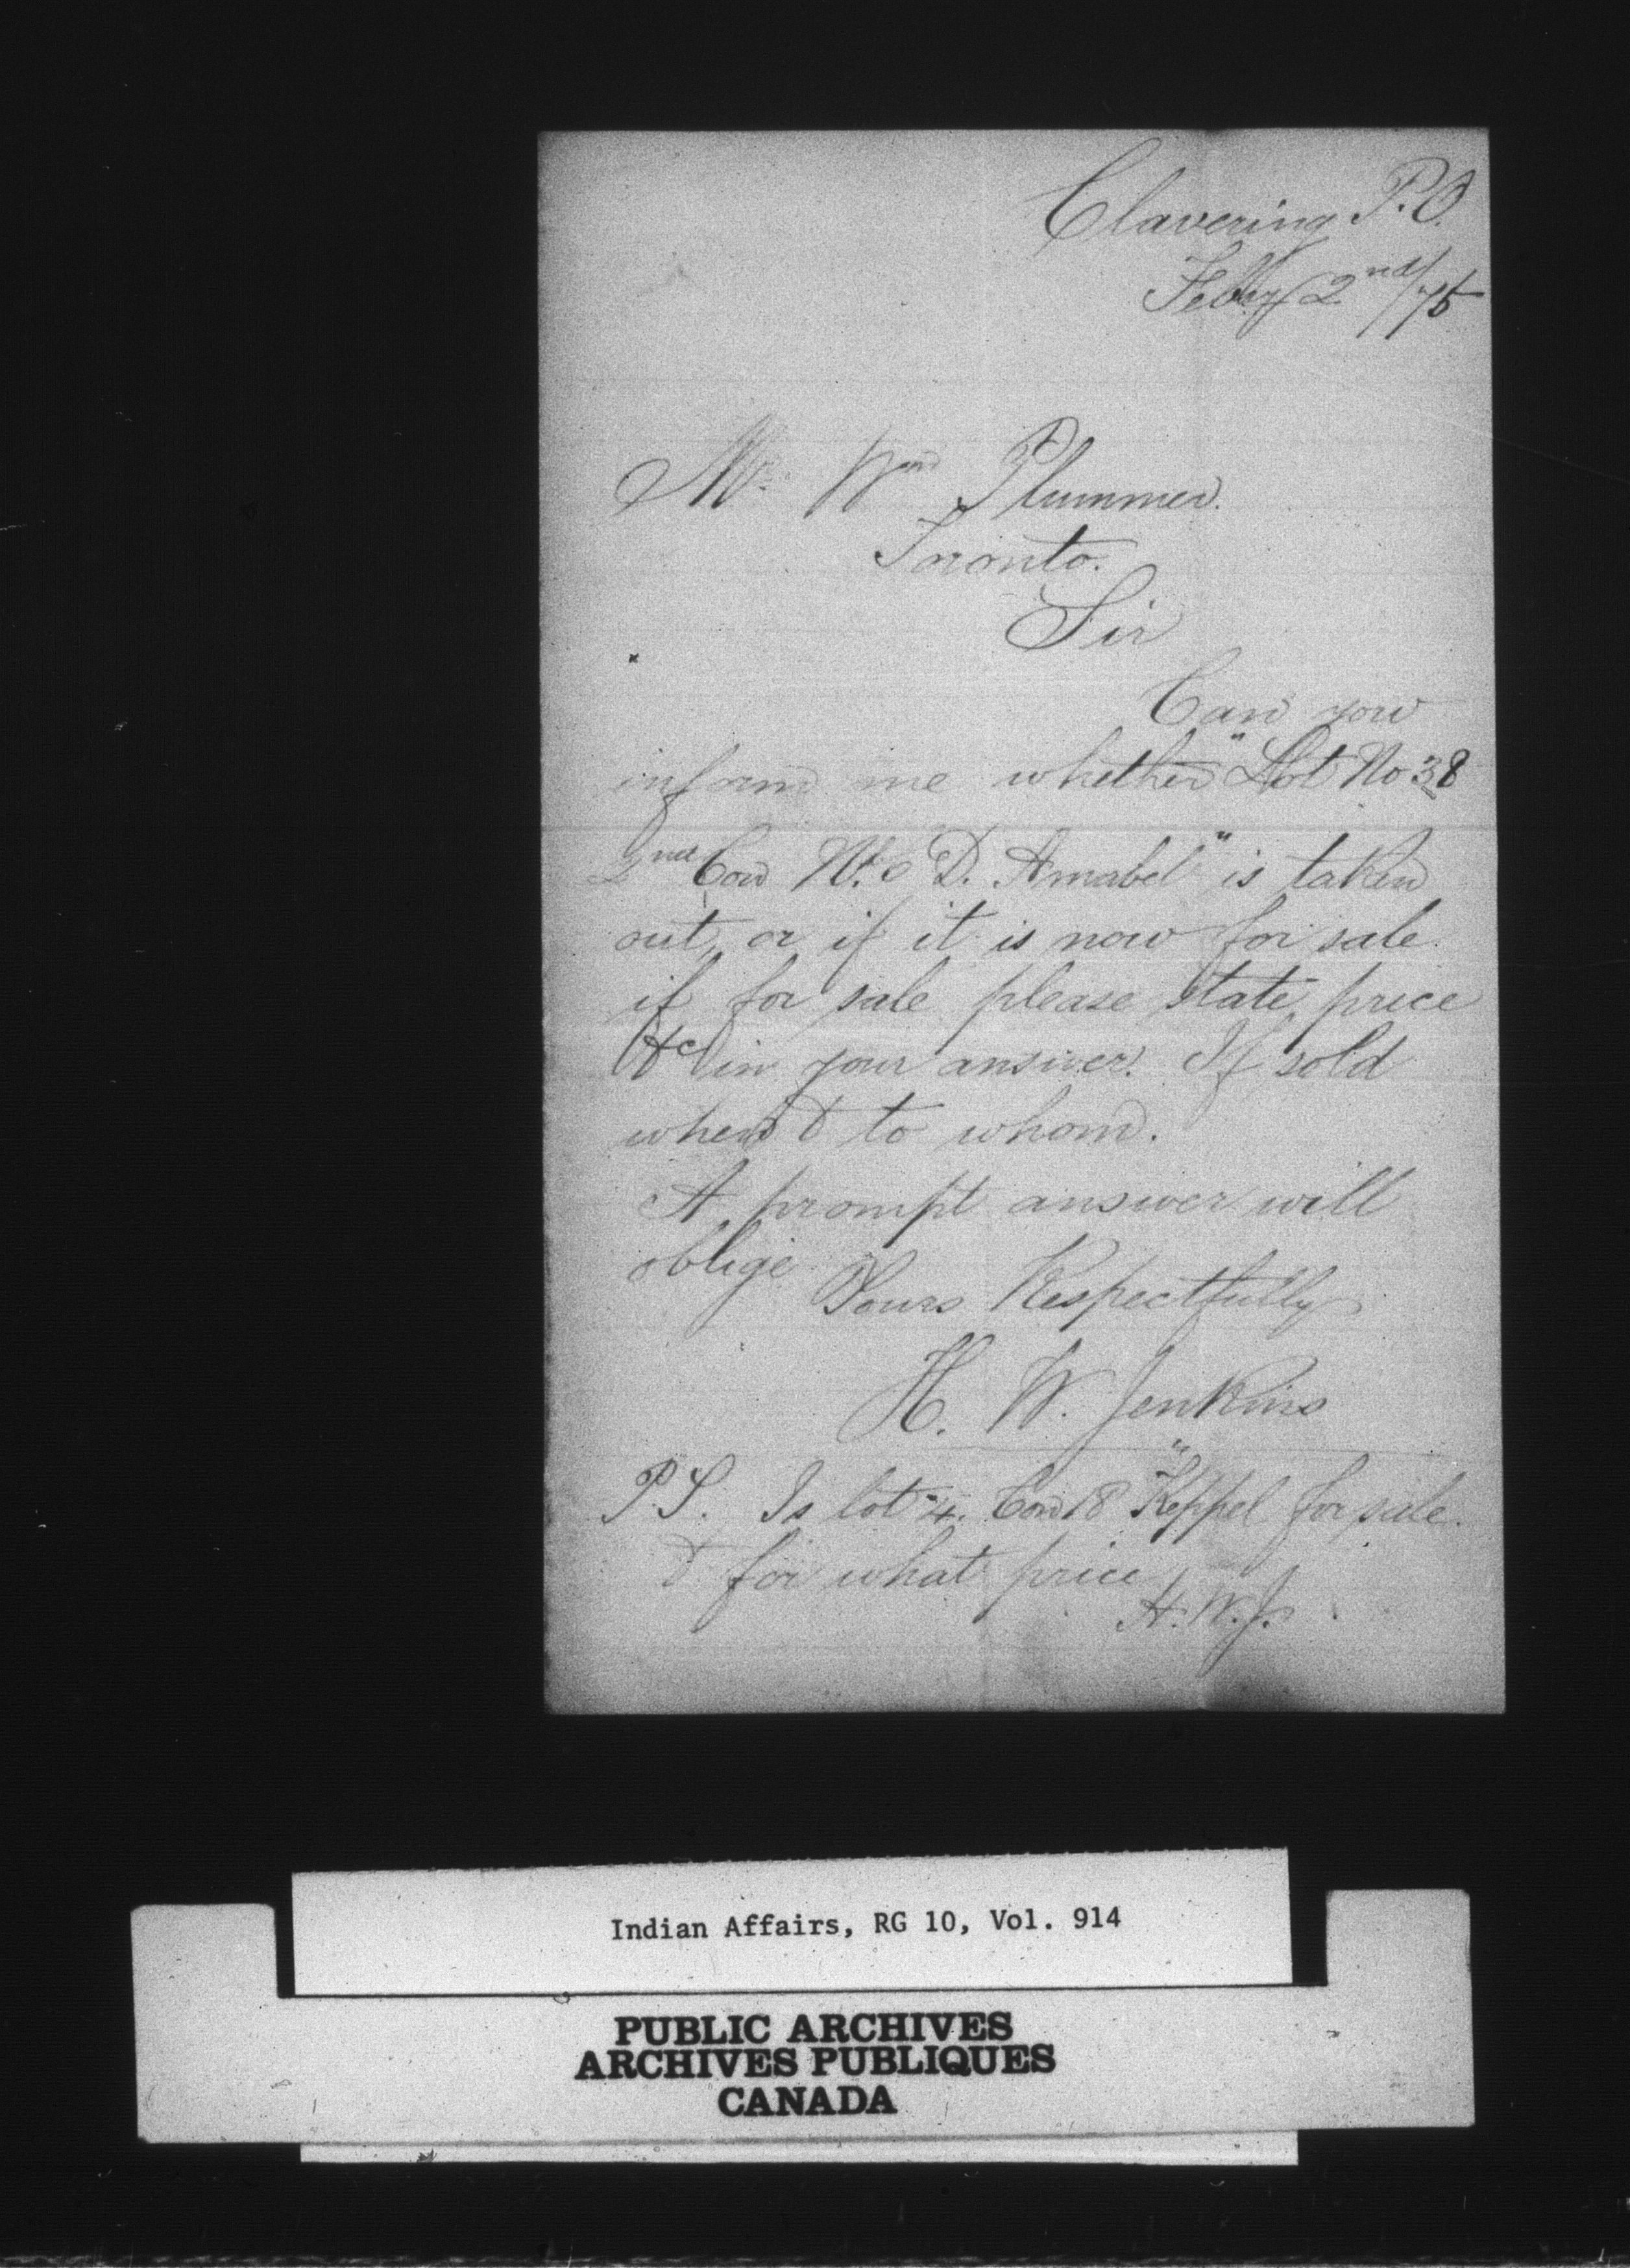 Clavering P.O.
Feby 2nd/75
Mr. Wm Plummer.
Toronto.
Sir
Can you
inform me whether "Lot No 38
2nd Con N. D. Amabel" is taken
out, or if it is now for sale.
if for sale please state price
&c in your answer. If sold
when & to whom.
A prompt answer will
oblige
Yours Respectfully
H. W. Jenkins
P.S. Is lot 4. Con 18 "Keppel for sale.
& for what price
H.W.J.
Indian Affairs, RG 10, Vol. 914
PUBLIC ARCHIVES
ARCHIVES PUBLIQUES
CANADA